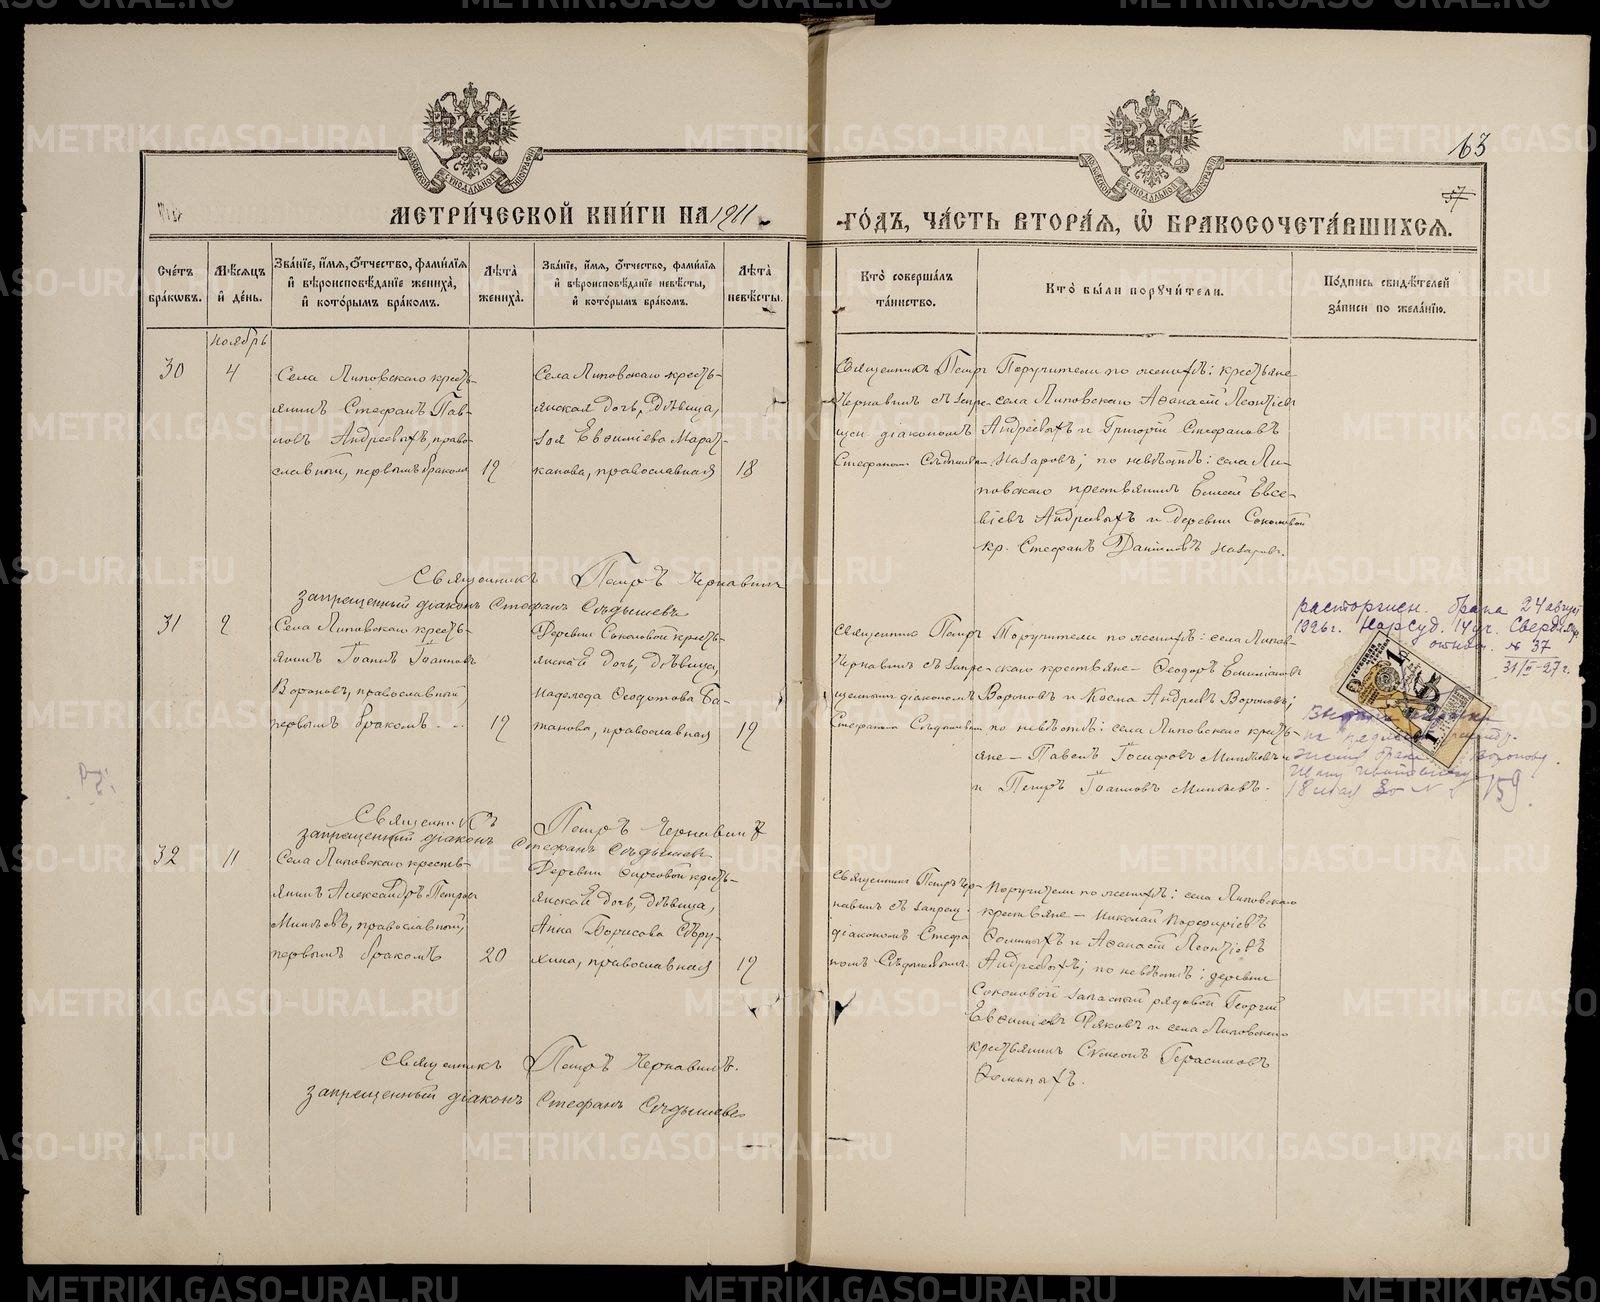 63
57
МЕТРИ́ЧЕСКОЙ КНИ́ГИ НА 1911
ГО́ДЪ, ЧА́СТЬ ВТОРА́Я, Ѽ БРАКОСОЧЕТА́ВШИХСЯ.
Сче́тъ бра́кѡвъ.
Мѣ́сяцъ и́ де́нь.
Зва́нїе, и́мя, о́тчество, фами́лїя
и́ вѣроисповѣ́данїе жениха̀,
и́ кото́рымъ бра́комъ.
Лѣ́та жениха̀.
Зва́нїе, и́мя, о́тчество, фами́лїя
и́ вѣроисповѣ́данїе невѣ́сты,
и́ кото́рымъ бра́комъ.
Лѣ́та невѣ́сты.
Кто̀ соверша́лъ
та́инство.
Кто̀ бы́ли поручи́тели.
По́дпись свидѣ́телей
за́писи по жела́нїю.
Ноябрь
30
4
Села Липовскаго кресть-
янинъ Стефанъ Пав-
ловъ Андреевыхъ, право-
славный, первымъ бракомъ
19
Села Липовскаго кресть-
янская дочь, дѣвица,
Зоя Евѳиміева Мара-
канова, православная
18
Священникъ Петръ
Чернавинъ съ запре-
щен діакономъ
Стефаномъ Сѣдышевымъ
Поручители по женихѣ: крестьяне
села Липовскаго Аѳанасій Леонтіевъ
Андреевыхъ и Григорій Стефановъ
Назаровъ; по невѣстѣ: села Ли-
повскаго крестьянинъ Елисей Евсе-
віевъ Андреевыхъ и деревни Соколовой
кр. Стефанъ Даніиловъ Назаровъ.
Священникъ Петръ Чернавинъ
запрещенный діаконъ Стефанъ Сѣдышевъ
31
9
Села Липовскаго кресть-
янинъ Іоаннъ Іоанновъ
Вороновъ, православный,
первымъ бракомъ
19
Деревни Соколовой кресть-
янская дочь, дѣвица,
Надежда Ѳеодотова Ба-
танова, православная
19
Священникъ Петръ
Чернавинъ съ запре-
щеннымъ діакономъ
Стефаномъ Сѣдышевымъ
Поручители по женихѣ: села Липов-
скаго крестьяне - Ѳеодоръ
Вороновъ и Косма Андреевъ Вороновъ;
по невѣстѣ: села Липовскаго кресть-
яне - Павелъ Іосифовъ Минѣевъ
и Петръ Іоанновъ Минѣевъ.
расторжен. брака 24 август
1926г. Нарсуд. 14 уч. Свердл
№ 37
31/II-27 г.
159.
Священникъ Петръ Чернавинъ
запрещенный діаконъ Стефанъ Сѣдышевъ
32
11
Села Липовскаго кресть-
янинъ Александръ Петровъ
Минѣевъ, православный,
первымъ бракомъ
20
Деревни кресть-
янская дочь, дѣвица,
Анна Борисова Сѣру-
хина, православная
19
Священникъ Петръ Чер-
навинъ съ запрещ.
діакономъ Стефа
номъ Сѣдышевымъ.
Поручители по женихѣ: села Липовскаго
крестьяне - Николай Порфиріевъ
Ѳоминыхъ и Аѳанасій Леонтіевъ
Андреевыхъ; по невѣстѣ: деревни
Соколовой запасный рядовой Георгій
Евѳиміевъ и села Липовскаго
крестьянинъ Герасимовъ
Ѳоминыхъ.
Священникъ Петръ Чернавинъ.
запрещенный діаконъ Стефанъ Сѣдышевъ
METRIKI.GASO-URAL.RU